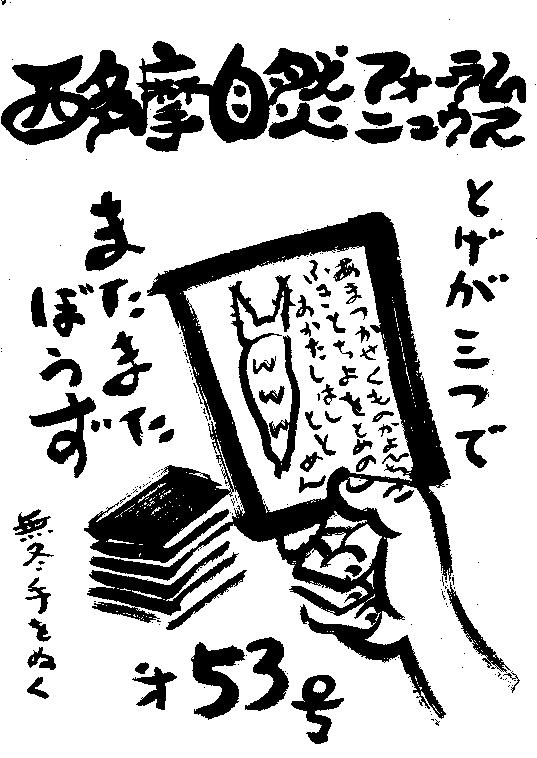 西多摩自然フォーラム
ニュウス
とげが三つで
あまつかぜくものかよひぢ
ふきとちよをとめの
すかたしはしととめん
またまた
ぼうず
無冬手をぬく
才53号